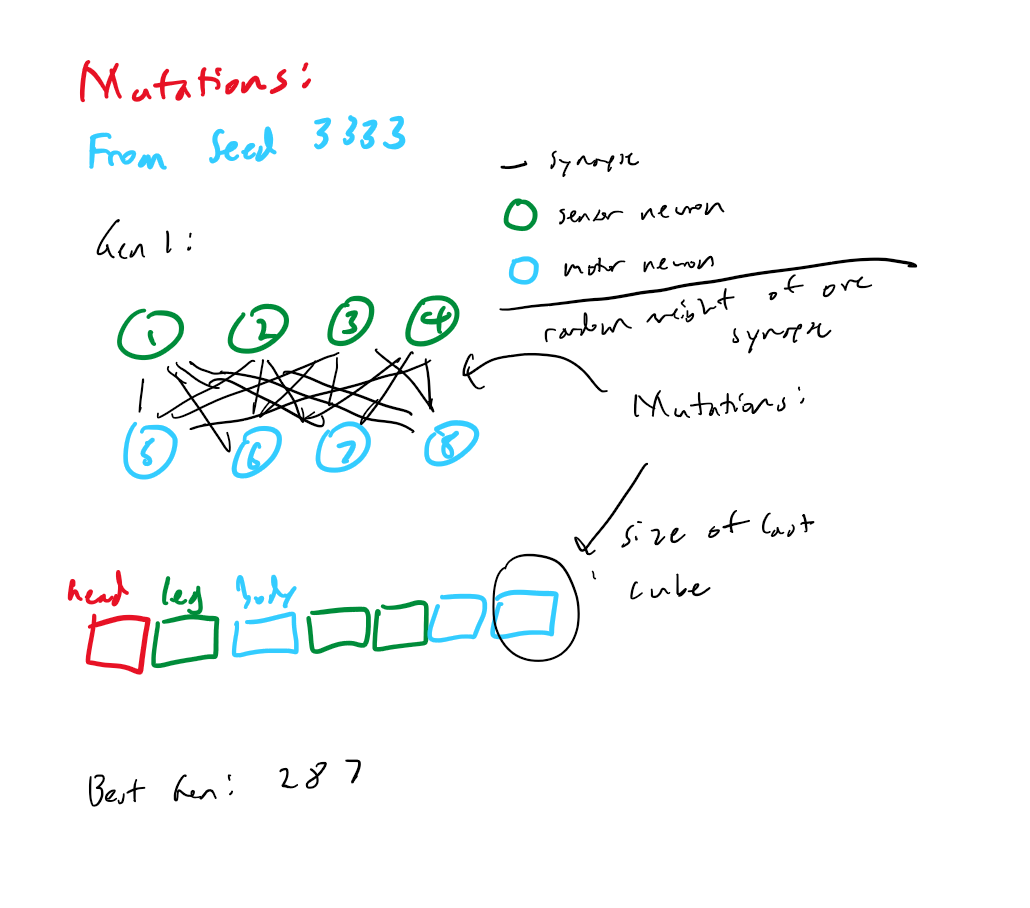 Mutations:
From Seed 3333
synapse
sensor neuron
Gen 1:
motor neuron
random weight of one
synapse
1 2 3 4
Mutations:
5 6 7 8
size of last
cube
head leg body
Best Gen: 287